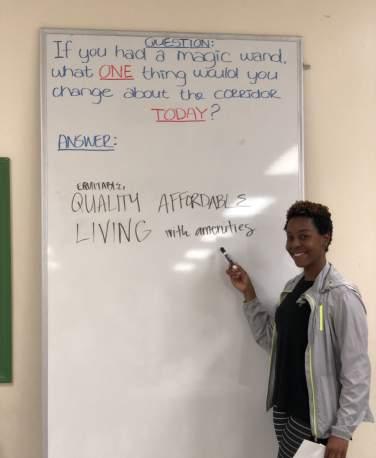 QUESTION:
If you had a magic wand,
what ONE thing would you
change about the corridor
TODAY?
ANSWER:
EQUITABLE,
QUALITY AFFORDABLE
LIVING with amenities